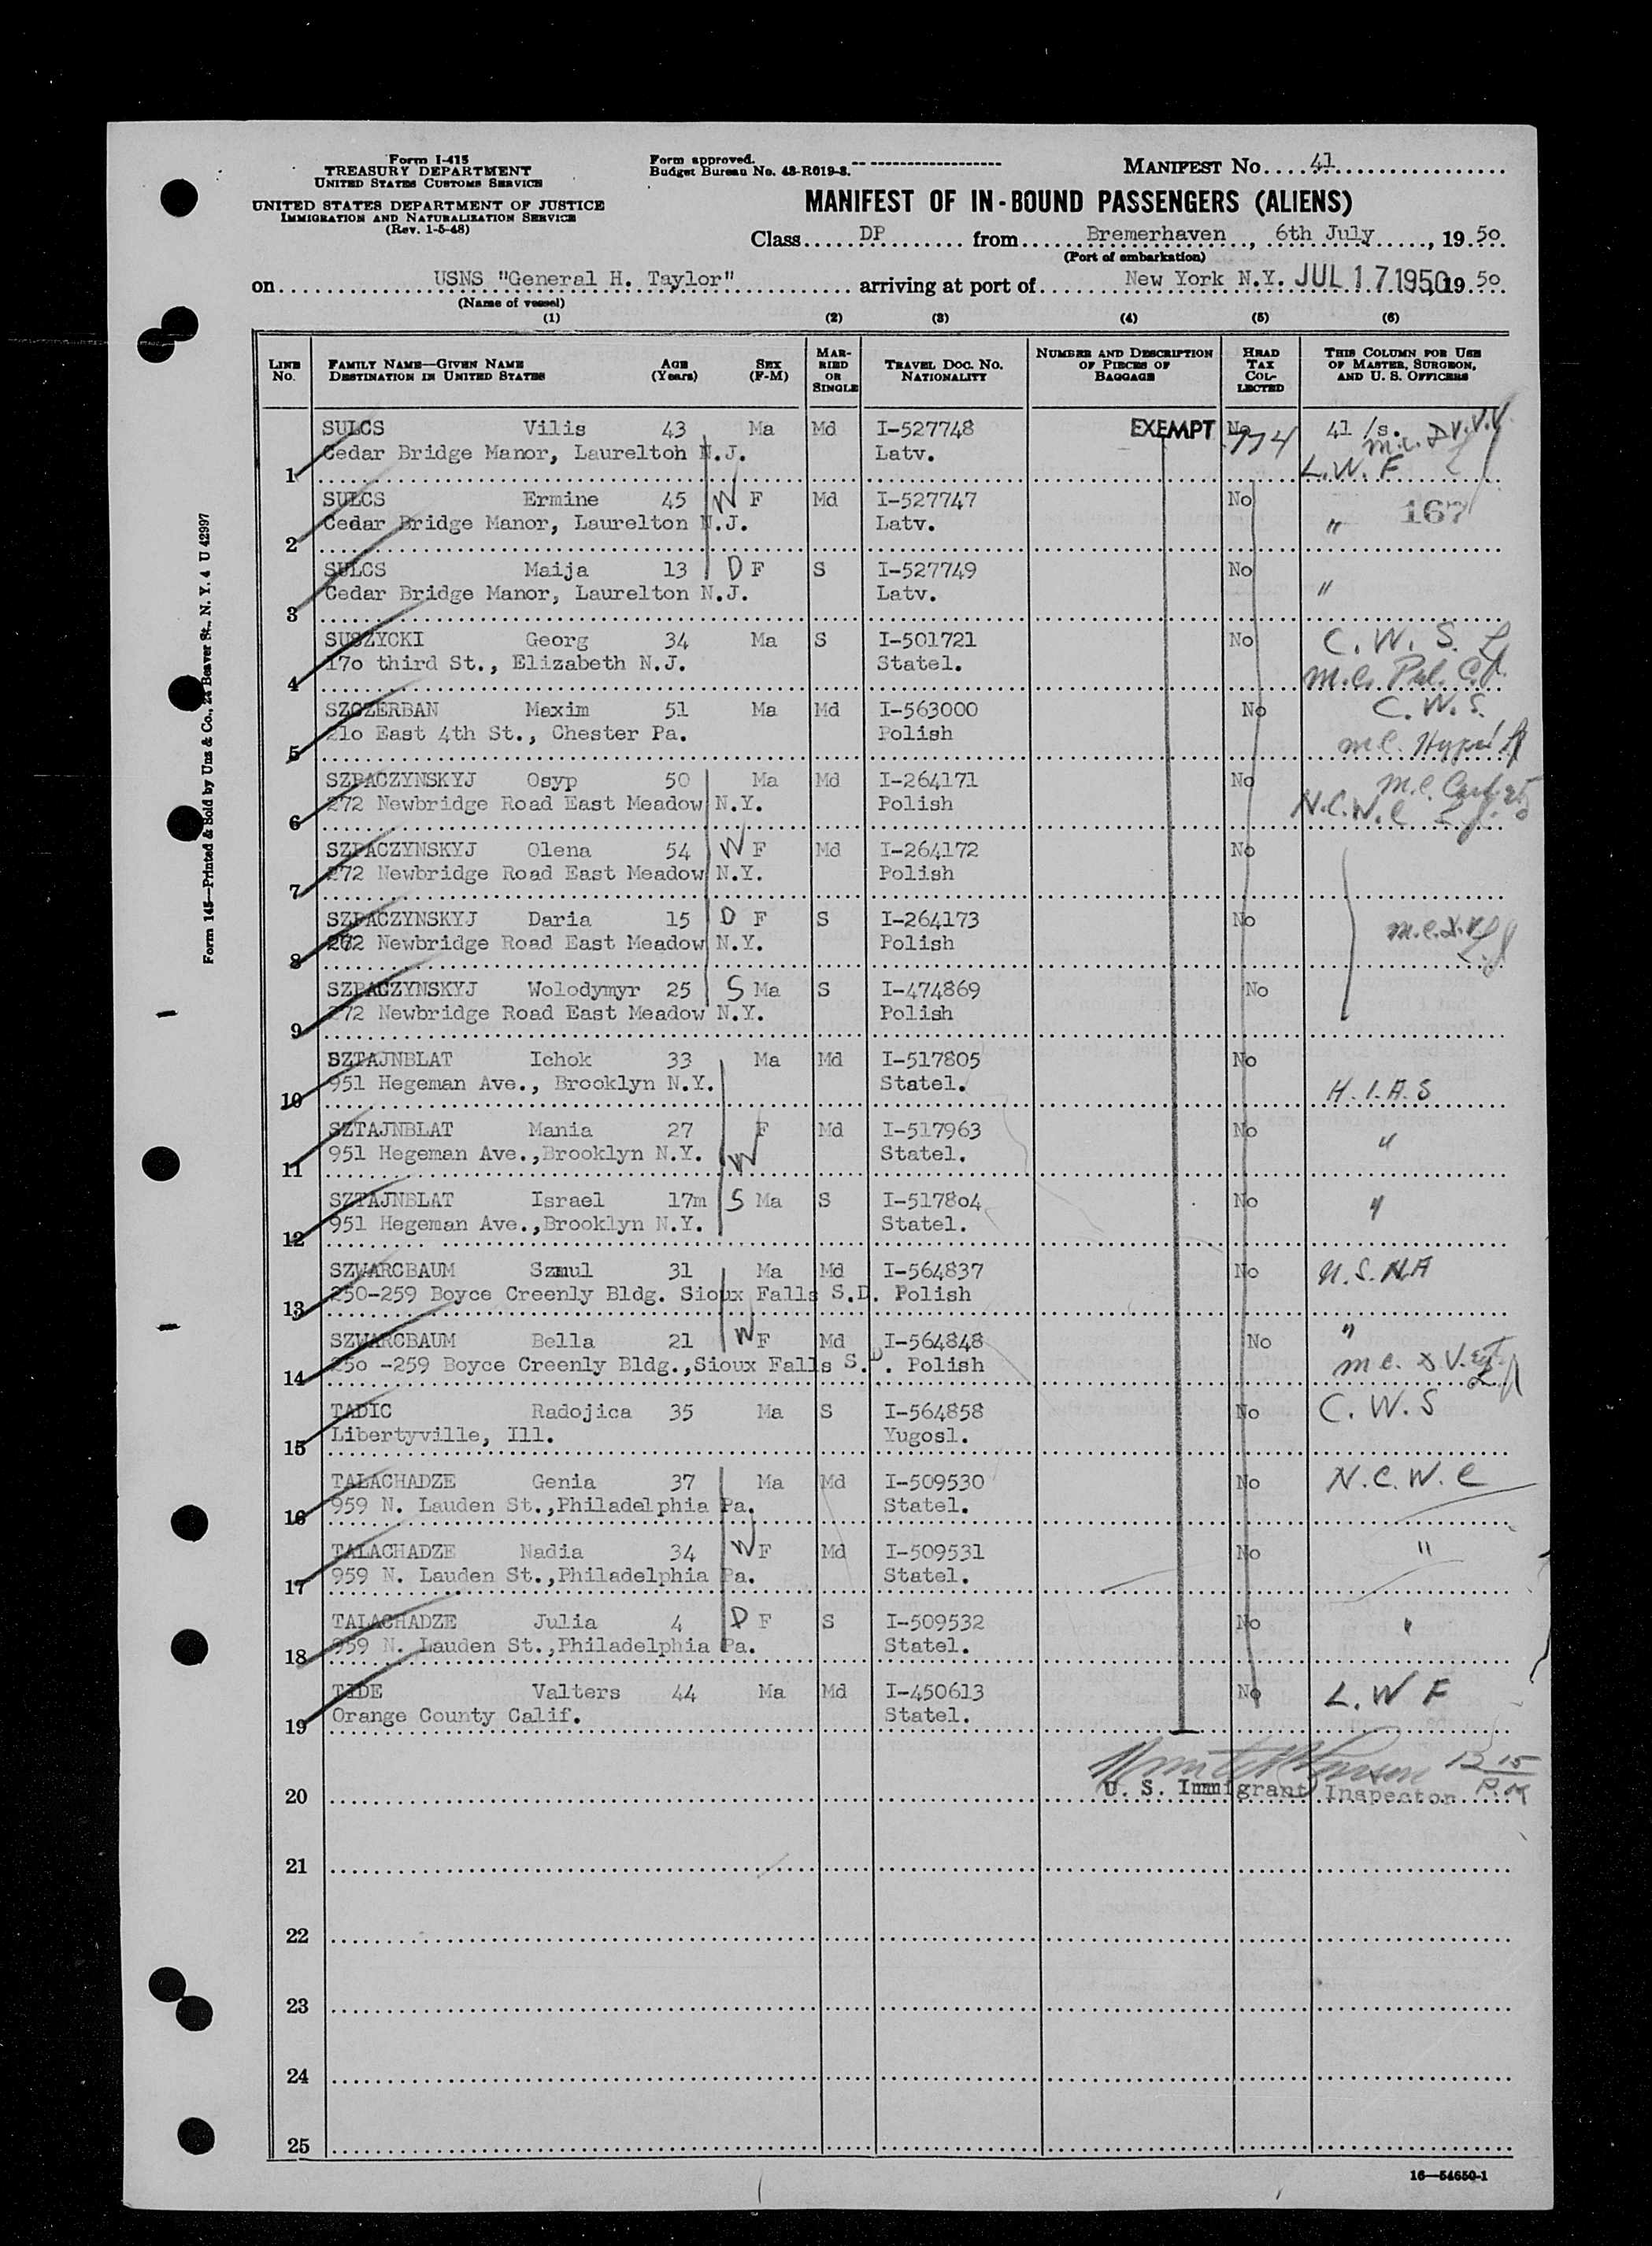 Form I-415
TREASURY DEPARTMENT
UNITED STATES CUSTOMS SERVICE
UNITED STATES DEPARTMENT OF JUSTICE
IMMIGRATION AND NATURALIZATION SERVICE
(Rev. 1-5-48)
Form approved.
Budget Bureau No. 43-R019-3.
MANIFEST No. 41
MANIFEST OF IN-BOUND PASSENGERS (ALIENS)
Class DP from Bremerhaven, 6th July, 19 50
(Port of embarkation)
on USNS "General H. Taylor" arriving at port of New York N.Y. JUL 17 1950 19 50
(Name of vessel)
(1) (2) (3) (4) (5) (6)
LINE No. FAMILY NAME—GIVEN NAME DESTINATION IN UNITED STATES AGE (Years) SEX (F-M) MARRIED OR SINGLE TRAVEL DOC. NO. NATIONALITY NUMBER AND DESCRIPTION OF PIECES OF BAGGAGE HEAD TAX COLLECTED THIS COLUMN FOR USE OF MASTER, SURGEON, AND U. S. OFFICERS
SULCS Vilis 43 Ma Md I-527748 EXEMPT No 41 /s.
1 Cedar Bridge Manor, Laurelton N.J. Latv. L.W.F
SULCS Ermine 45 W F Md I-527747 No 167
2 Cedar Bridge Manor, Laurelton N.J. Latv. "
SULCS Maija 13 D F S I-527749 No
3 Cedar Bridge Manor, Laurelton N.J. Latv. "
SUSZYCKI Georg 34 Ma S I-501721 No C.W.S.
4 17o third St., Elizabeth N.J. Statel.
SZCZERBAN Maxim 51 Ma Md I-563000 No C.W.S.
5 21o East 4th St., Chester Pa. Polish
SZPACZYNSKYJ Osyp 50 Ma Md I-264171 No
6 272 Newbridge Road East Meadow N.Y. Polish N.C.W.C
SZPACZYNSKYJ Olena 54 W F Md I-264172 No
7 272 Newbridge Road East Meadow N.Y. Polish
SZPACZYNSKYJ Daria 15 D F S I-264173 No
8 272 Newbridge Road East Meadow N.Y. Polish
SZPACZYNSKYJ Wolodymyr 25 S Ma S I-474869 No
9 272 Newbridge Road East Meadow N.Y. Polish
SZTAJNBLAT Ichok 33 Ma Md I-517805 No
10 951 Hegeman Ave., Brooklyn N.Y. Statel. H.I.A.S
SZTAJNBLAT Mania 27 F Md I-517963 No
11 951 Hegeman Ave.,Brooklyn N.Y. W Statel. "
SZTAJNBLAT Israel 17m S Ma S I-5178o4 No "
12 951 Hegeman Ave.,Brooklyn N.Y. Statel.
SZWARCBAUM Szmul 31 Ma Md I-564837 No U.S.N.A
13 250-259 Boyce Creenly Bldg. Sioux Falls S.D. Polish
SZWARCBAUM Bella 21 W F Md I-564848 No "
14 25o -259 Boyce Creenly Bldg.,Sioux Falls S.D. Polish
TADIC Radojica 35 Ma S I-564858 No C.W.S
15 Libertyville, Ill. Yugosl.
TALACHADZE Genia 37 Ma Md I-509530 No N.C.W.C
16 959 N. Lauden St.,Philadelphia Pa. Statel.
TALACHADZE Nadia 34 W F Md I-509531 No "
17 959 N. Lauden St.,Philadelphia Pa. Statel.
TALACHADZE Julia 4 D F S I-509532 No "
18 959 N. Lauden St.,Philadelphia Pa. Statel.
TIDE Valters 44 Ma Md I-450613 No L.W F
19 Orange County Calif. Statel.
20 U. S. Immigrant Inspector
21
22
23
24
25
16—54650-1
Form 145—Printed & Sold by Unz & Co., 24 Beaver St., N. Y. 4 U 42997